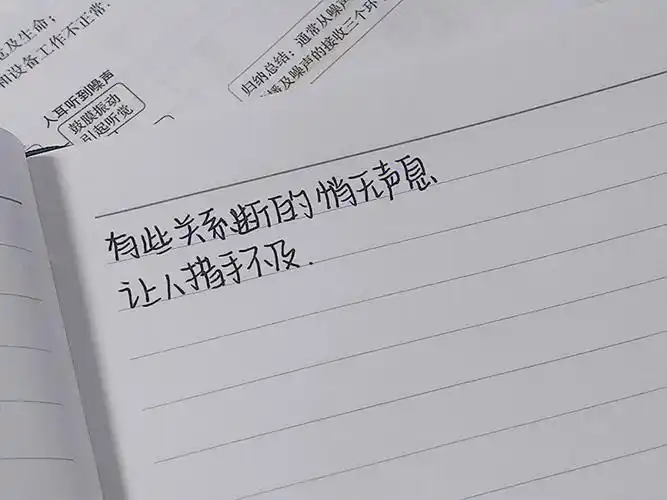 及生命；
和设备工作不正常.
人耳听到噪声
鼓膜振动
引起听觉
归纳总结：通常从噪声
播及噪声的接收三个环
有些关系断的悄无声息
让人措手不及.